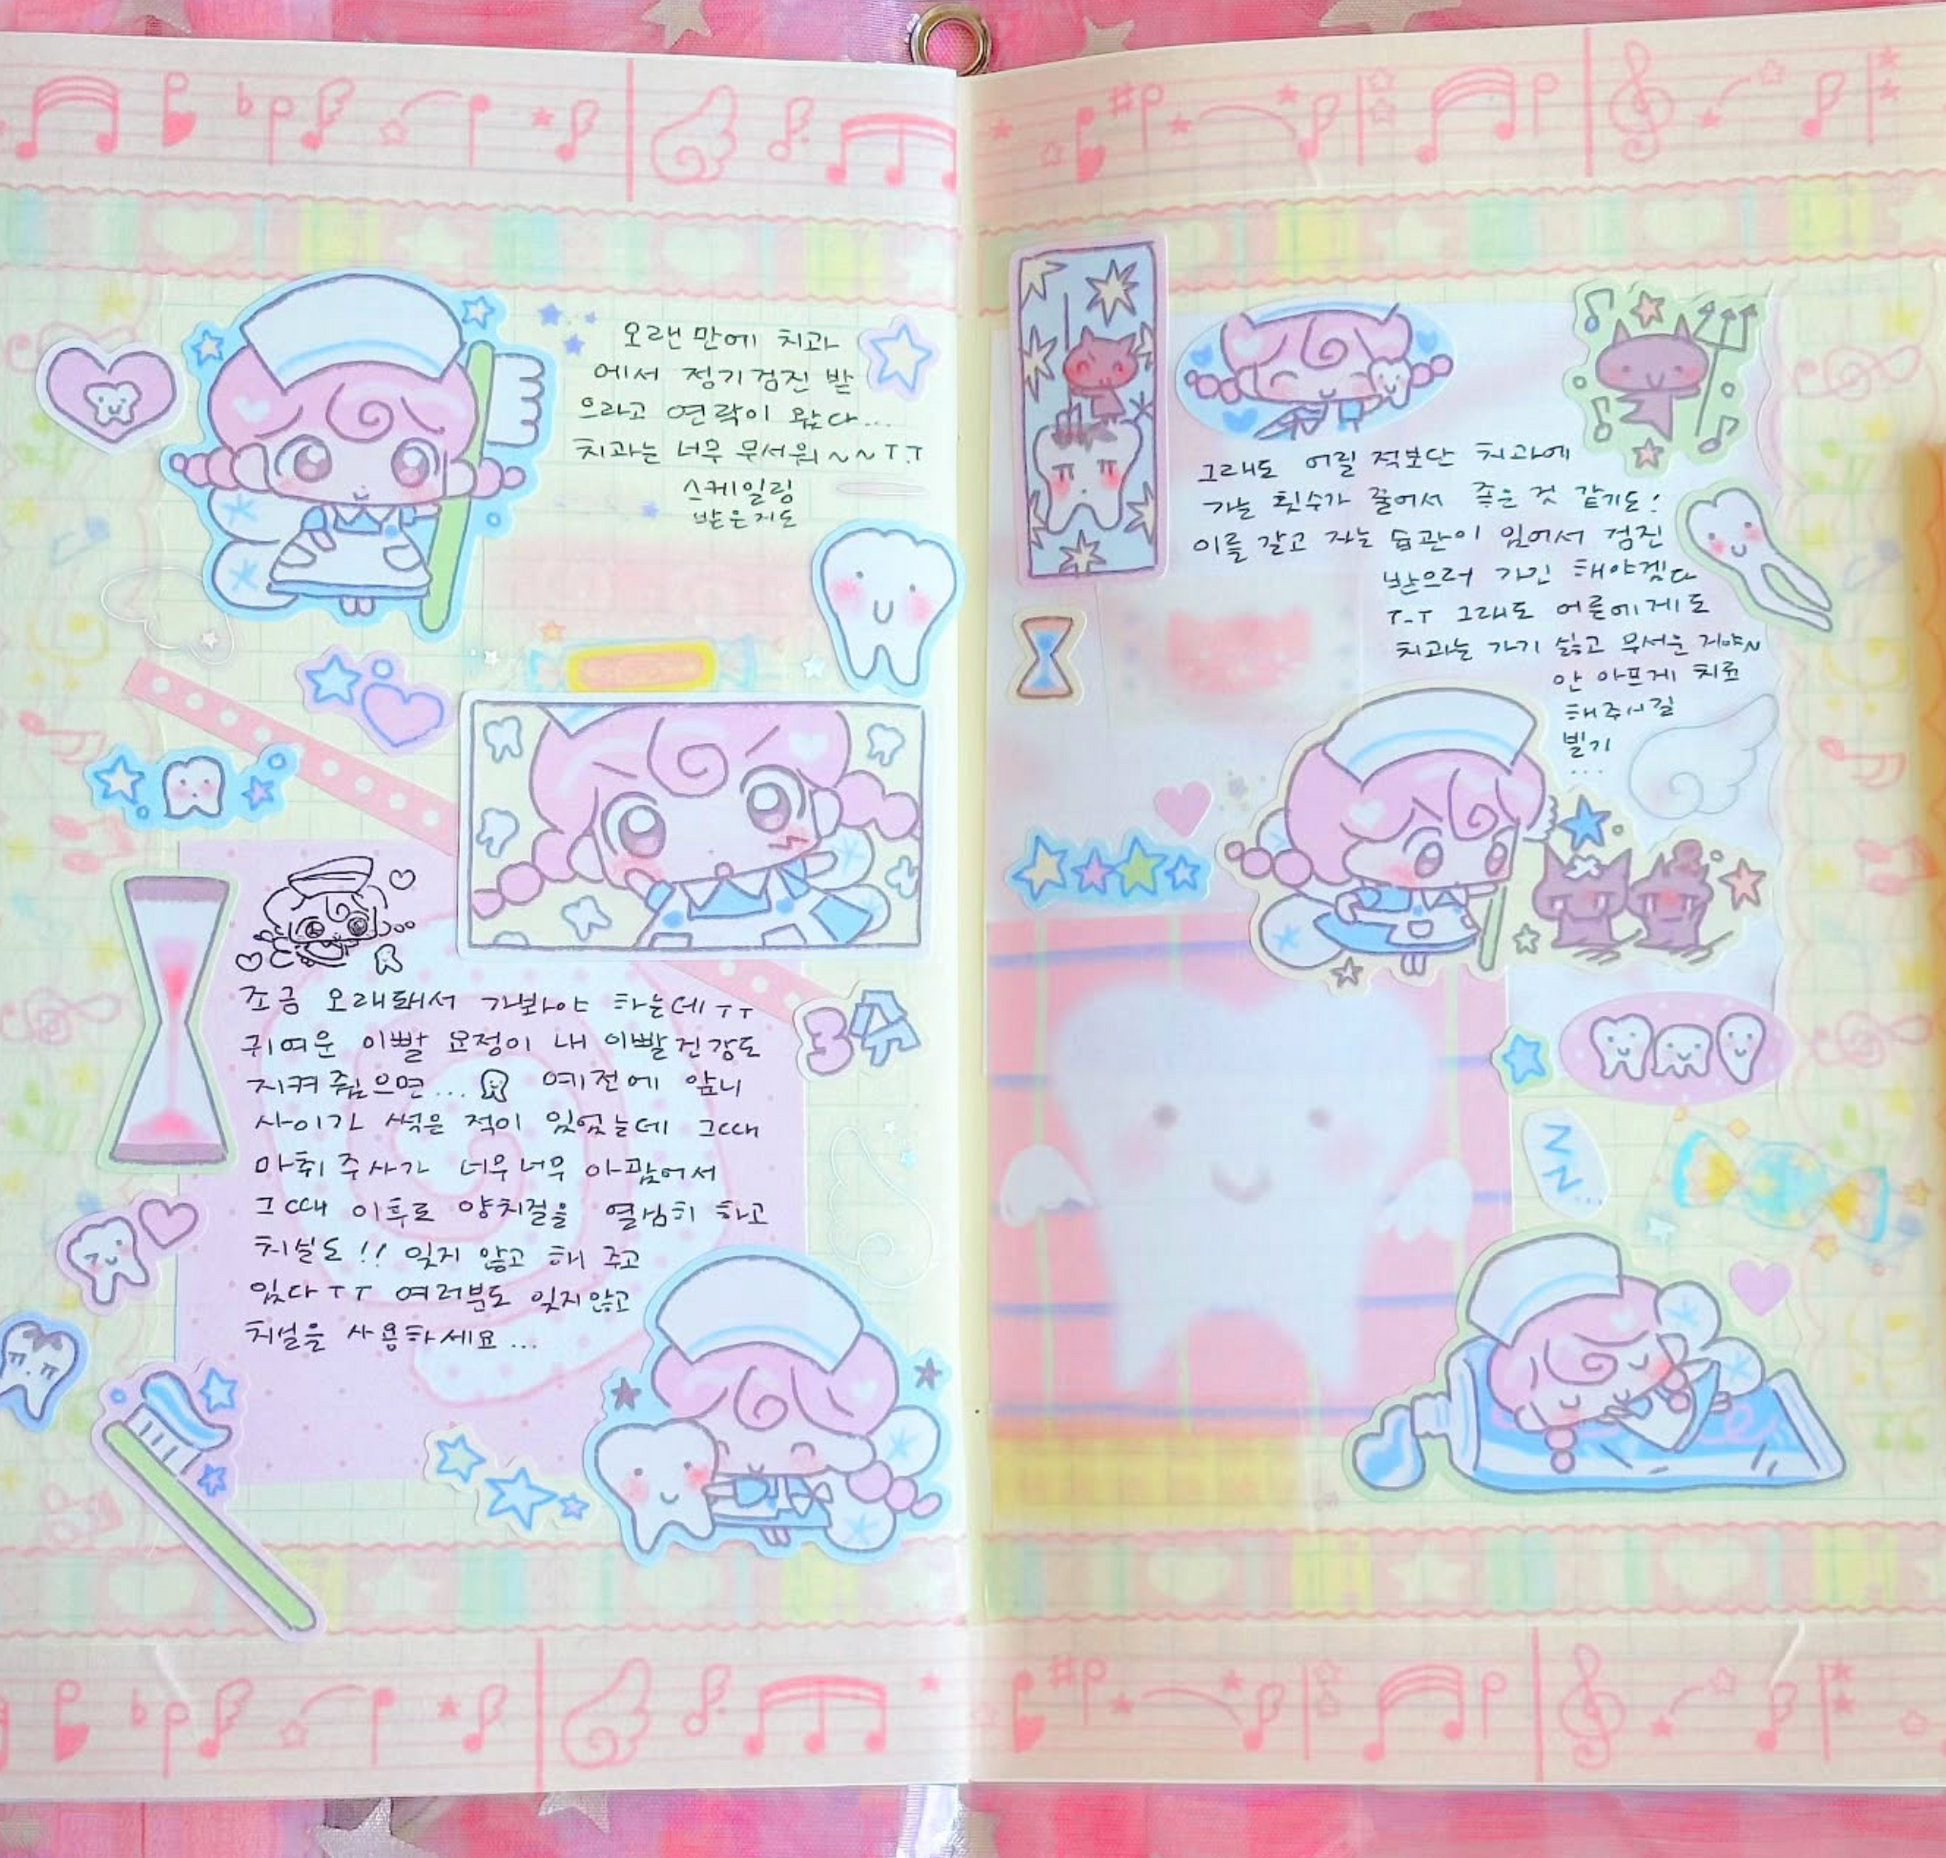 오랜만에 치과
에서 정기검진 받
으라고 연락이 왔다...
치과는 너무 무서워~~ㅜ.ㅜ
스케일링
받은지도
조금 오래돼서 가봐야 하는데ㅜㅜ
귀여운 이빨 요정이 내 이빨건강도
지켜줬으면... 예전에 앞니
사이가 썩은 적이 있었는데 그때
마취 주사가 너무너무 아팠어서
그때 이후로 양치질을 열심히 하고
치실도!! 잊지 않고 해 주고
있다ㅜㅜ 여러분도 잊지않고
치실을 사용하세요...
3
그래도 어릴 적보단 치과에
가는 횟수가 줄어서 좋은 것 같기도!
이를 갈고 자는 습관이 있어서 검진
받으러 가긴 해야겠다
ㅜ-ㅜ 그래도 어른에게도
치과는 가기 싫고 무서운 거야~
안 아프게 치료
해주시길
빌기
...
zz...